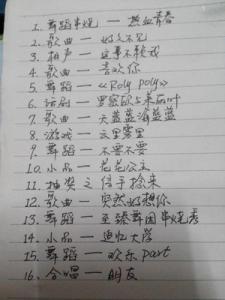 1. 舞蹈串烧 — 热血青春
2. 歌曲 — 好久不见
3. 相声 — 这事不赖我
4. 歌曲 — 喜欢你
5. 舞蹈 — 《Roly poly》
6. 话剧 — 罗密欧与朱丽叶
7. 歌曲 — 天蓝蓝海蓝蓝
8. 游戏 — 云里雾里
9. 舞蹈 — 不要不要
10. 小品 — 花花公主
11. 抽奖之信手拾来
12. 歌曲 — 突然好想你
13. 舞蹈 — 至臻舞团串烧秀
14. 小品 — 追忆大学
15. 舞蹈 — 欢乐part
16. 合唱 — 朋友